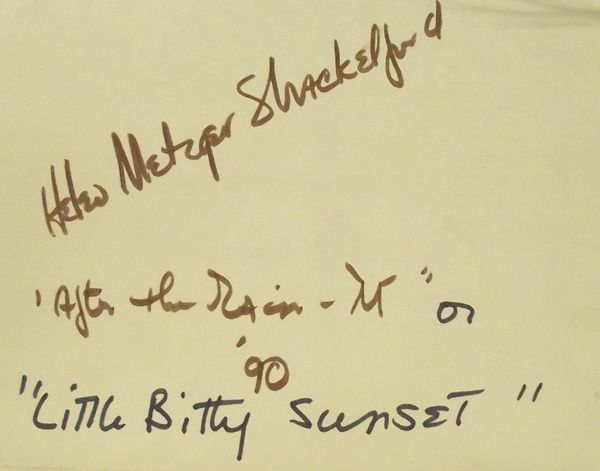 Helen Metzger Shackelford
'After the Rain - M" or
'90
"Little Bitty Sunset"